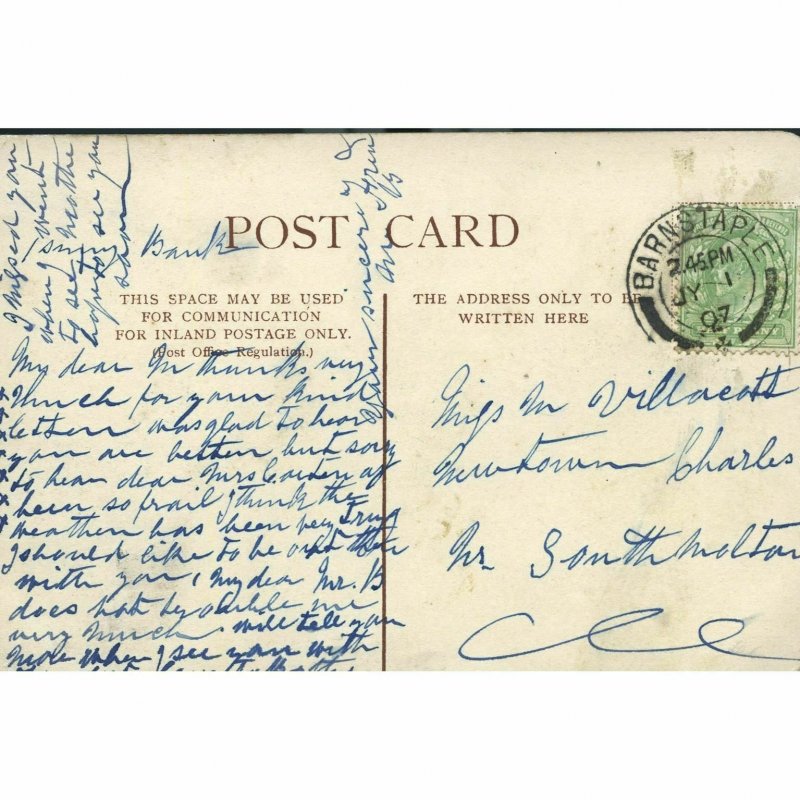 POST CARD
THIS SPACE MAY BE USED
FOR COMMUNICATION
FOR INLAND POSTAGE ONLY.
(Post Office Regulation.)
THE ADDRESS ONLY TO BE
WRITTEN HERE
BARNSTAPLE
2.45 PM
JY 1
07
Bank
My dear M thanks very
Much for your kind
letter was glad to hear
you are better but sorry
to hear dear Mrs
been so frail I think the
weather has been very
I should like to be out there
with you, My dear Mr. B
does not me
very Much will tell you
More when I see you with
I missed you
when I went
to see
hope to see you
soon
Yours sincerely
Miss M Villacott
Newtown Charles
Nr. South Molton